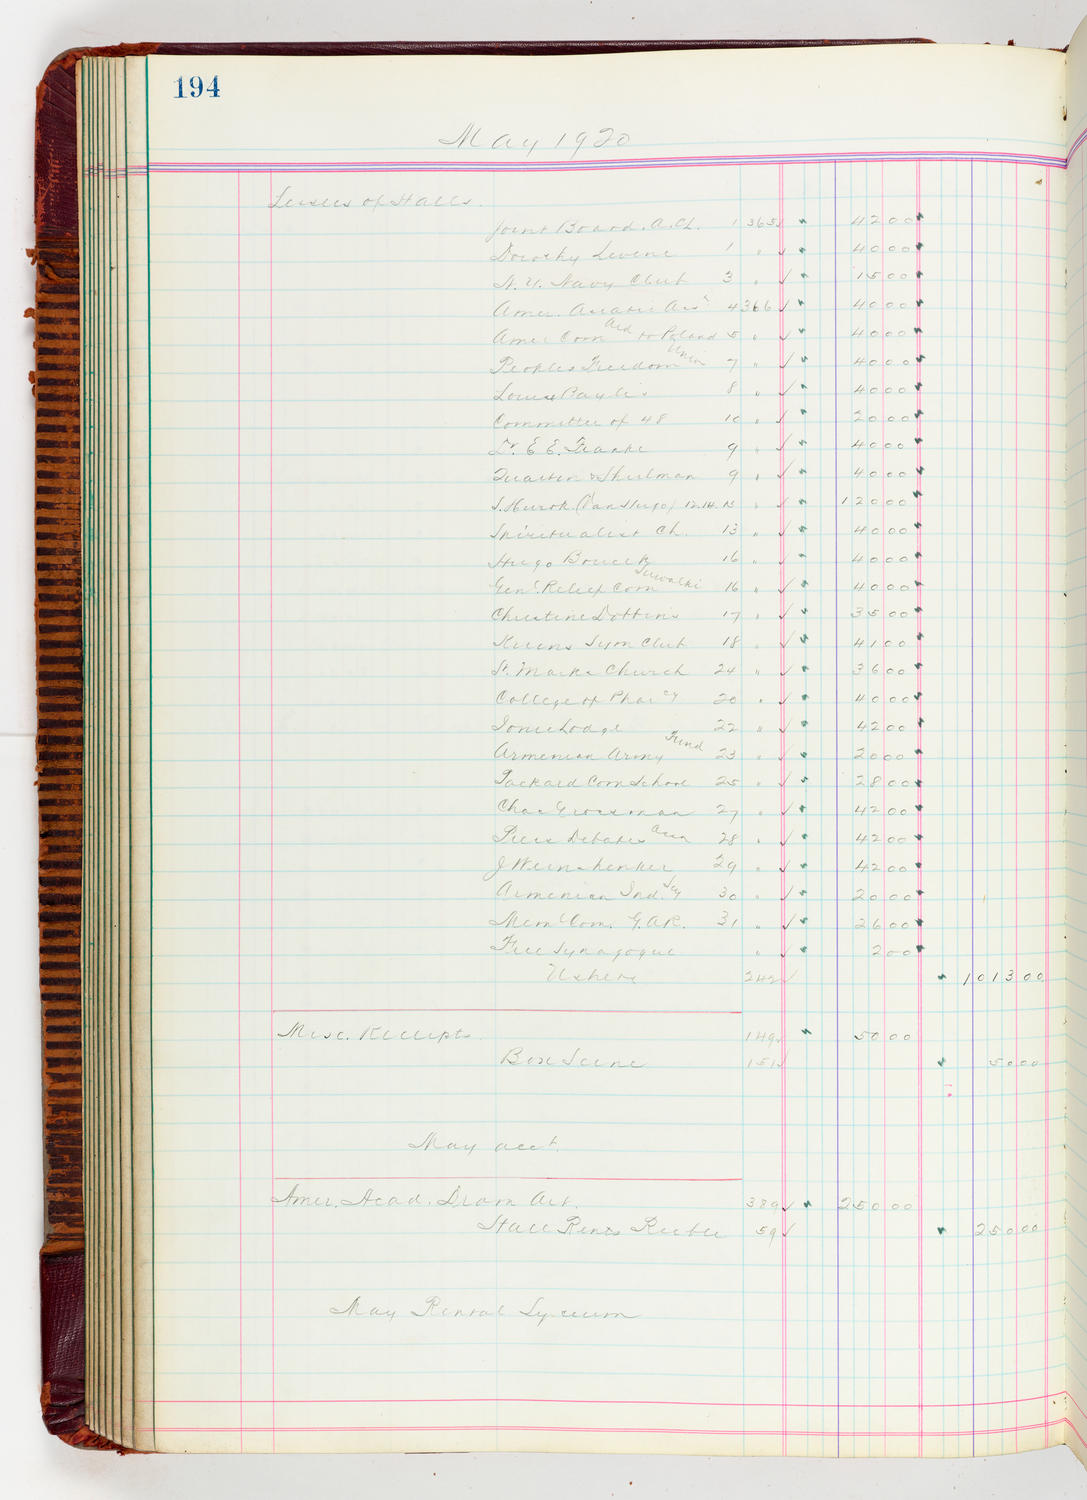 194
May 1920
Lessees of Halls.
Joint Board. A. Cl. 1 365 42 00
Dorothy Levene 1 " 40 00
N. Y. Navy Club 3 " 15 00
Amer. Asiatic Assn 4 366 40 00
Amer Com Aid to Poland 5 " 40 00
Peoples Freedom Union 7 " 40 00
Louis Baylis 8 " 40 00
Committee of 48 10 " 20 00
Dr. E. E. Franke 9 " 40 00
& Shulman 9 " 40 00
S. Hurok (Van Hugo) 12.14.15 " 120 00
Spiritualist Ch. 13 " 40 00
Hugo Boucek 16 " 40 00
Genl. Relief Com Suwalki 16 " 40 00
Christine Dobbins 17 " 35 00
Kruens Sym Club 18 " 41 00
St. Marks Church 24 " 36 00
College of Pharcy 20 " 40 00
Ionic Lodge 22 " 42 00
Armenian Army Fund 23 " 20 00
Packard Com School 25 " 28 00
Chas Grossman 27 " 42 00
Press Debates Assn 28 " 42 00
J Weinshenker 29 " 42 00
Armenian Ind. Jey 30 " 20 00
Meml Com. G.A.R. 31 " 26 00
Free Synagogue " 2 00
Ushers 242 1013 00
Misc. Receipts. 149 50 00
Box Scene 151 50 00
May acct.
Amer. Acad. Dram Art. 389 250 00
Hall Rents Recble 59 250 00
May Rental Lyceum